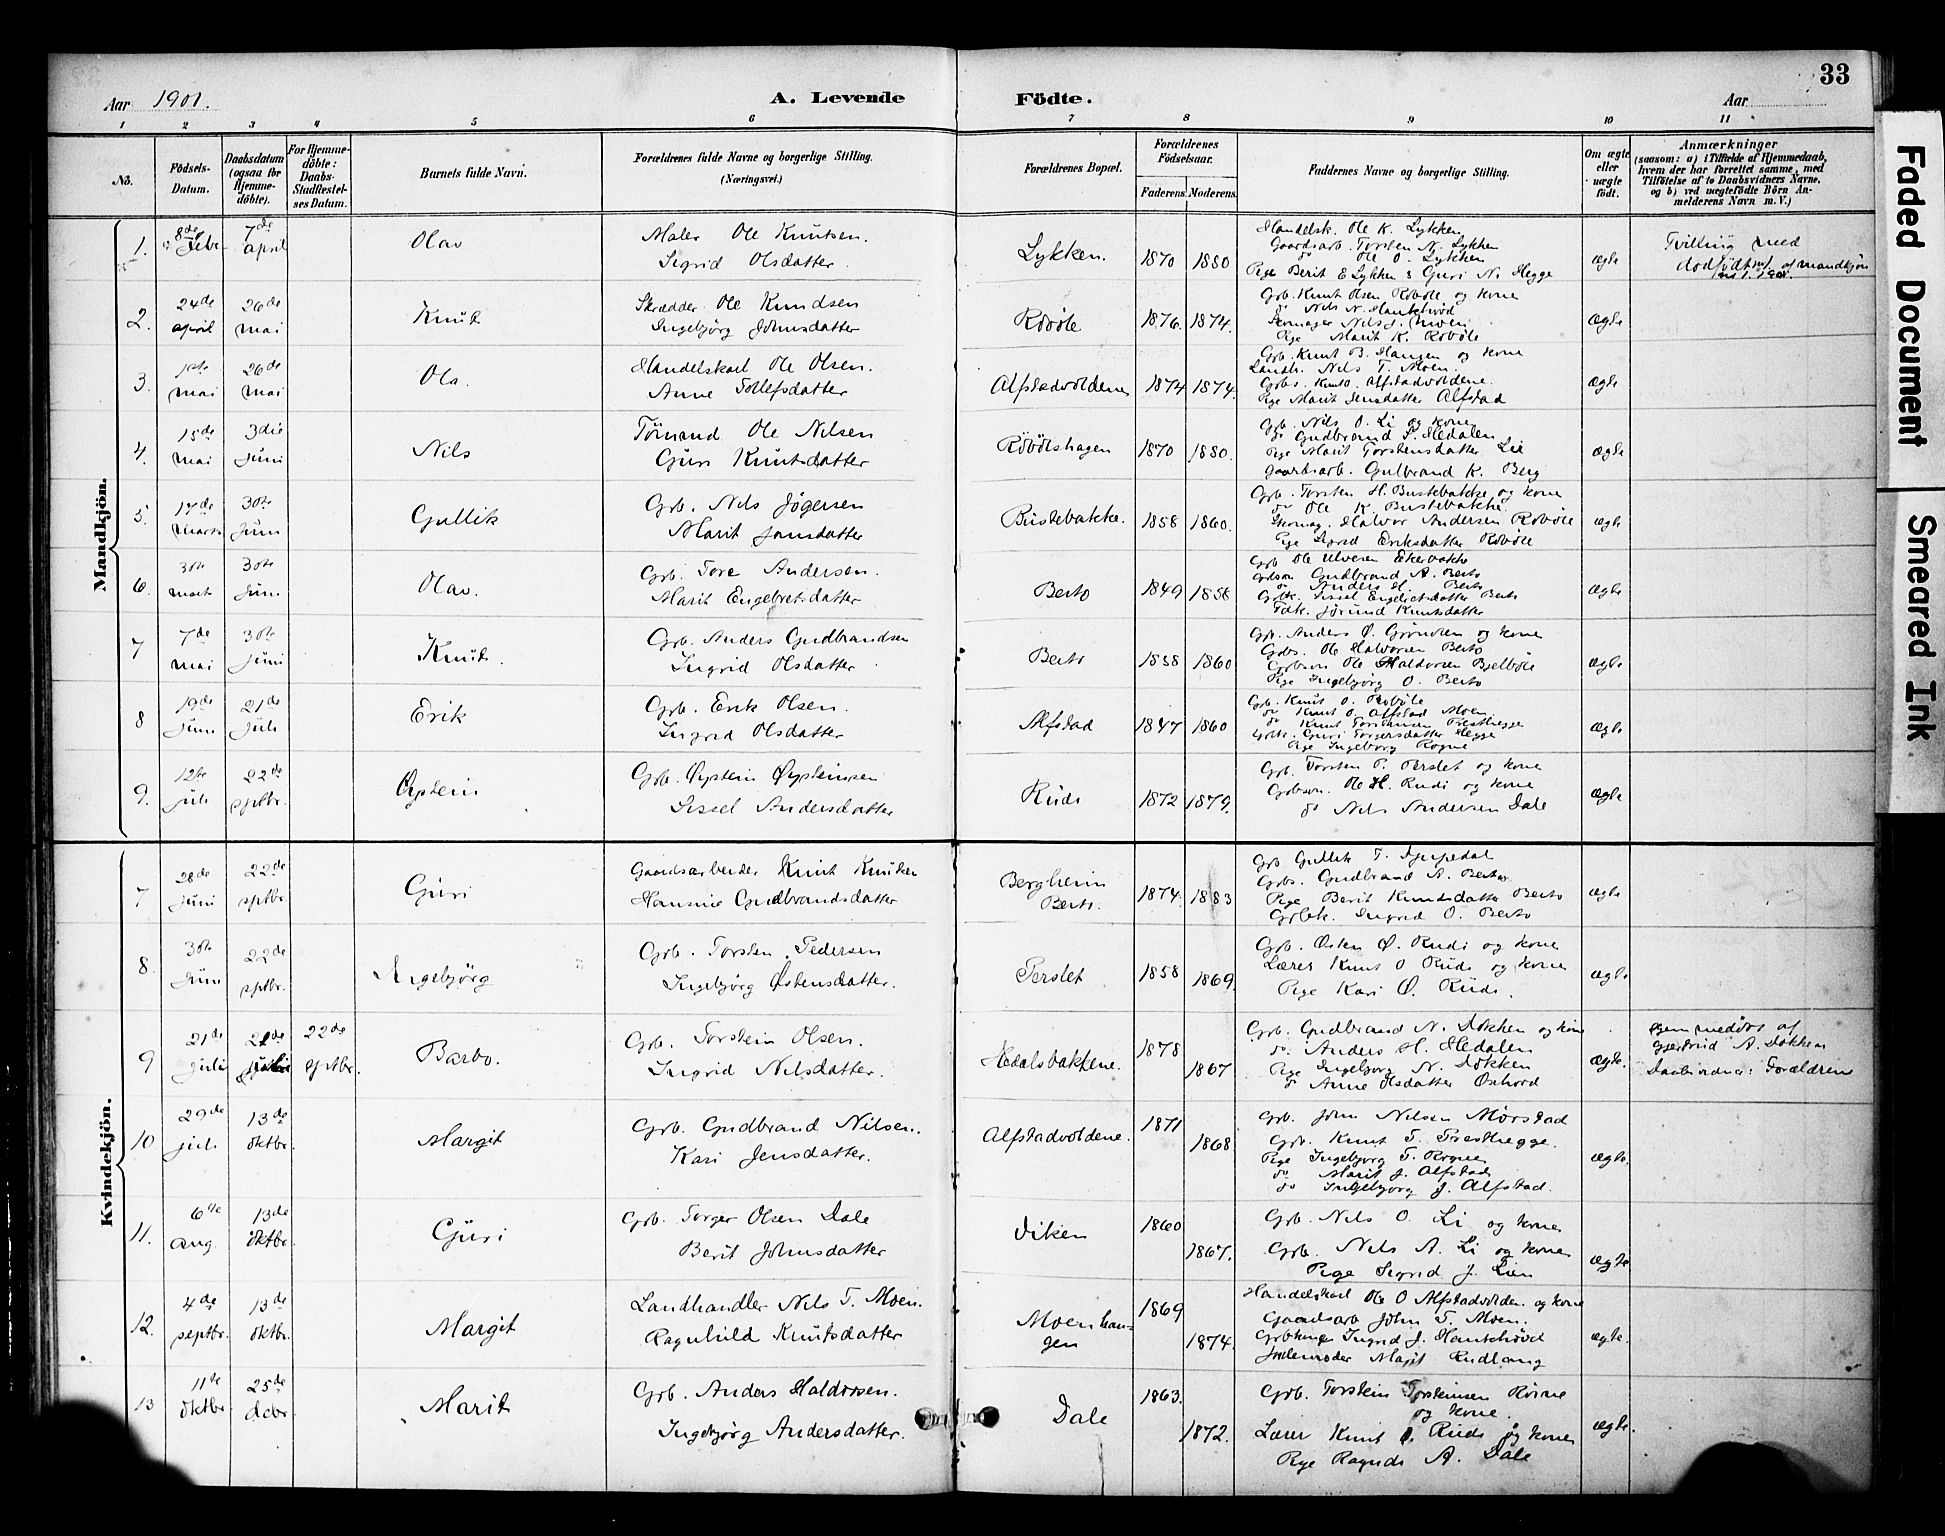 33
Aar 1901. A. Levende Födte. Aar
1 2 3 4 5 6 7 8 9 10 11
No. Födsels-Datum. Daabsdatum (ogsaa for Hjemme-döbte). For Hjemme-döbte: Daabs-Stadfæstel-ses Datum. Barnets fulde Navn. Forældrenes fulde Navne og borgerlige Stilling. (Næringsvei.) Forældrenes Bopæl. Forældrenes Födselsaar. Faderens. Moderens. Faddernes Navne og borgerlige Stilling. Om ægte eller uægte födt. Anmærkninger (saasom: a) i Tilfælde af Hjemmedaab, hvem der har forrettet samme, med Tilföielse af to Daabsvidners Navne. og b) ved uægtefödte Börn An-melderens Navn m. V.)
Mandkjön.
1. 8de Febr. 7de april Olav
Maler Ole Knutsen.
Sigrid Olsdatter.
Lykken. 1870 1880
Handelsk. Ole K. Lykken
Gaardsarb. Torsten N. Lykken
do Ole O. Lykken
Pige Berit E Lykken & Guri N. Hegge
ægte
Tvilling med
dødfødt af mandkjøn
2. 24de april 26de mai Knut
Skrædder Ole Knudsen
Ingebjörg Johnsdatter
Röböle 1876. 1874.
Grb. Knut Olsen Röböle og kone
do Nils N. Hantehöd
Skomager Nils J. Moen
Pige Marit K. Röböle
ægte
3. 1ste mai 26de mai Ola.
Handelskarl Ole Olsen.
Anne Tollefsdatter
Alfstadvoldene 1874 1874.
Grb. Knut B. Haugen og kone
Landh. Nils T. Moen.
Grbs. Knut O. Alfstadvoldene.
Pige Marit Jensdatter Alfstad
ægte
4. 15de mai 3die Juni Nils
Tömmand Ole Nilsen
Guri Knutsdatter
Röböleshagen 1870 1880.
Grb. Nils O. Li og kone
do Gudbrand T. Hedalen
Pige Marit Torstensdatter Lie
Gaardsarb. Gulbrand K. Berg
ægte
5. 17de marts 30te Juni Gullik
Grb. Nils Jögersen
Marit Jonsdatter
Büstebakke. 1858 1860.
Grb. Torsten H. Bustebakke og kone
do Ole K. Bustebakke.
Skomag. Halvor Andersen Röböle
Pige Sigrid Eriksdatter Röböle
ægte
6. 30te marts 30te Juni Olav.
Grb. Tore Andersen.
Marit Engebretsdatter
Berto 1849 1858
Grb Ole Ulveren Ekerbakke
Grbson Gudbrand A. Berto
do Anders H. Berto
Grbdt. Sissel Engebretsdatter Berto
Fdk. Jørund Knutsdatter
ægte
7 7de mai 30te Juni Knut.
Grb. Anders Gudbrandsen
Ingrid Olsdatter
Berto 1858 1860
Grb. Anders Ø. Grønolen og kone
Grbs. Ole Halvorsen Berto
Grbson Ole Haldorsen Bjelböle
Pige Ingebjørg O. Berto
ægte
8 19de Juni 21de Juli Erik
Grb. Erik Olsen.
Ingrid Olsdatter
Alfstad 1847 1860
Grb. Knut O. Röböle
do Knut O. Alfstad Moen.
do Knut Torstensen Presthegge
Grbdt. Guri Torgersdatter Hegge
Pige Ingeborg Rogne
ægte
9. 12te juli 22de septbr. Øystein
Grb. Øystein Øysteinsen
Sissel Andersdatter
Rudi 1872 1879.
Grb. Torsten P. Perslet og kone
Grbson. Ole H. Rudi og kone
do Nils Andersen Dale
ægte
Kvindekjön.
7 28de Juni 22de septbr. Guri
Gaardsarbeider Knut Knutsen
Hansine Gudbrandsdatter
Bergheim
Berto.
1874. 1883
Grb Gullik T. Djupedal
Grbs. Gudbrand A. Berto
Pige Berit Knudsdatter Berto
Grbdt. Ingrid O. Berto
ægte
8. 30te Juni 22de septbr. Ingebjörg
Grb. Torsten Pedersen
Ingebjörg Östensdatter.
Perslet 1858 1869.
Grb. Östen Ø. Rudi og kone
Lærer Knut O Rudi og kone
Pige Kari Ø. Rudi.
ægte
9 21de juli 21de juli 22de septbr. Barbo.
Grb. Torstein Olsen.
Ingrid Nilsdatter.
Hedalsbakkene. 1878 1867
Grb. Gudbrand N. Dokken og kone
do. Anders H. Hedalen
Pige Ingebjorg N. Dokken
do Anne Olsdatter
ægte.
Hjemmedøbt af
Gjertrud A. Dokken
Daabsvidner: Forældrene
10 29de juli 13de oktbr. Margit
Grb. Gudbrand Nilsen.
Kari Jensdatter.
Alfstadvoldene. 1871 1868
Grb. John Nilsen Mörstad
Grb. Knut T. Presthegge.
Pige Ingebjorg T. Rogne
do Marit J. Alfstad
do Ingebjörg J. Alfstad.
ægte.
11. 6te aug. 13de oktbr. Guri
Grb. Torger Olsen Dale
Berit Johnsdatter
Viken 1860 1867.
Grb. Nils O. Li og kone
Grb. Nils A. Li og kone
Pige Sigrid J. Lien
ægte
12. 4de septbr. 13de oktbr. Margit
Landhandler Nils T. Moen.
Ragnhild Knutsdatter
Moenhau-
gen
1869 1874.
Handelskarl Ole O Alfstadvolden og kone
Gaardsarb John T. Moen.
Ingrid J. Hantehöd
Jordemoder Marit Rudlang
ægte.
13 11te oktbr. 25de decbr Marit
Grb. Anders Haldorsen.
Ingebjörg Andersdatter.
Dale 1863. 1872.
Grb. Torstein Torsteinsen Rogne
og kone.
Lærer Knut O. Rudi og kone
Pige Ragndi A. Dale
ægte.
Faded Document
Smeared Ink